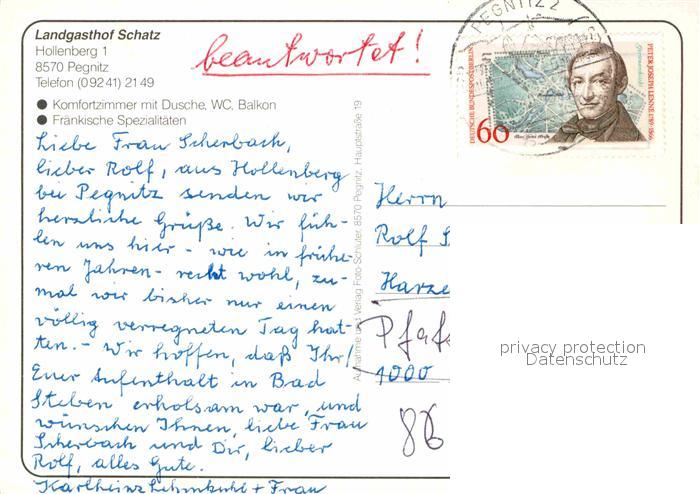 Landgasthof Schatz
Hollenberg 1
8570 Pegnitz
Telefon (09241) 2149
● Komfortzimmer mit Dusche, WC, Balkon
● Fränkische Spezialitäten
beantwortet!
PEGNITZ 2
DEUTSCHE BUNDESPOST BERLIN
60
PETER JOSEPH LENNÉ 1789-1866
Gartenarchitekt
Liebe Frau Scherbach,
lieber Rolf, aus Hollenberg
bei Pegnitz senden wir
herzliche Grüße. Wir füh-
len uns hier - wie in frühe-
ren Jahren - recht wohl, zu-
mal wir bisher nur einen
völlig verregneten Tag hat-
ten. - Wir hoffen, daß Ihr/
Euer Aufenthalt in Bad
Steben erholsam war, und
wünschen Ihnen, liebe Frau
Scherbach und Dir, lieber
Rolf, alles Gute.
Karlheinz Lehmkuhl + Frau
Aufnahme und Verlag Foto-Schlüter, 8570 Pegnitz, Hauptstraße 19
Herrn
Rolf S
Harze
Pfaf
1000
86
privacy protection
Datenschutz